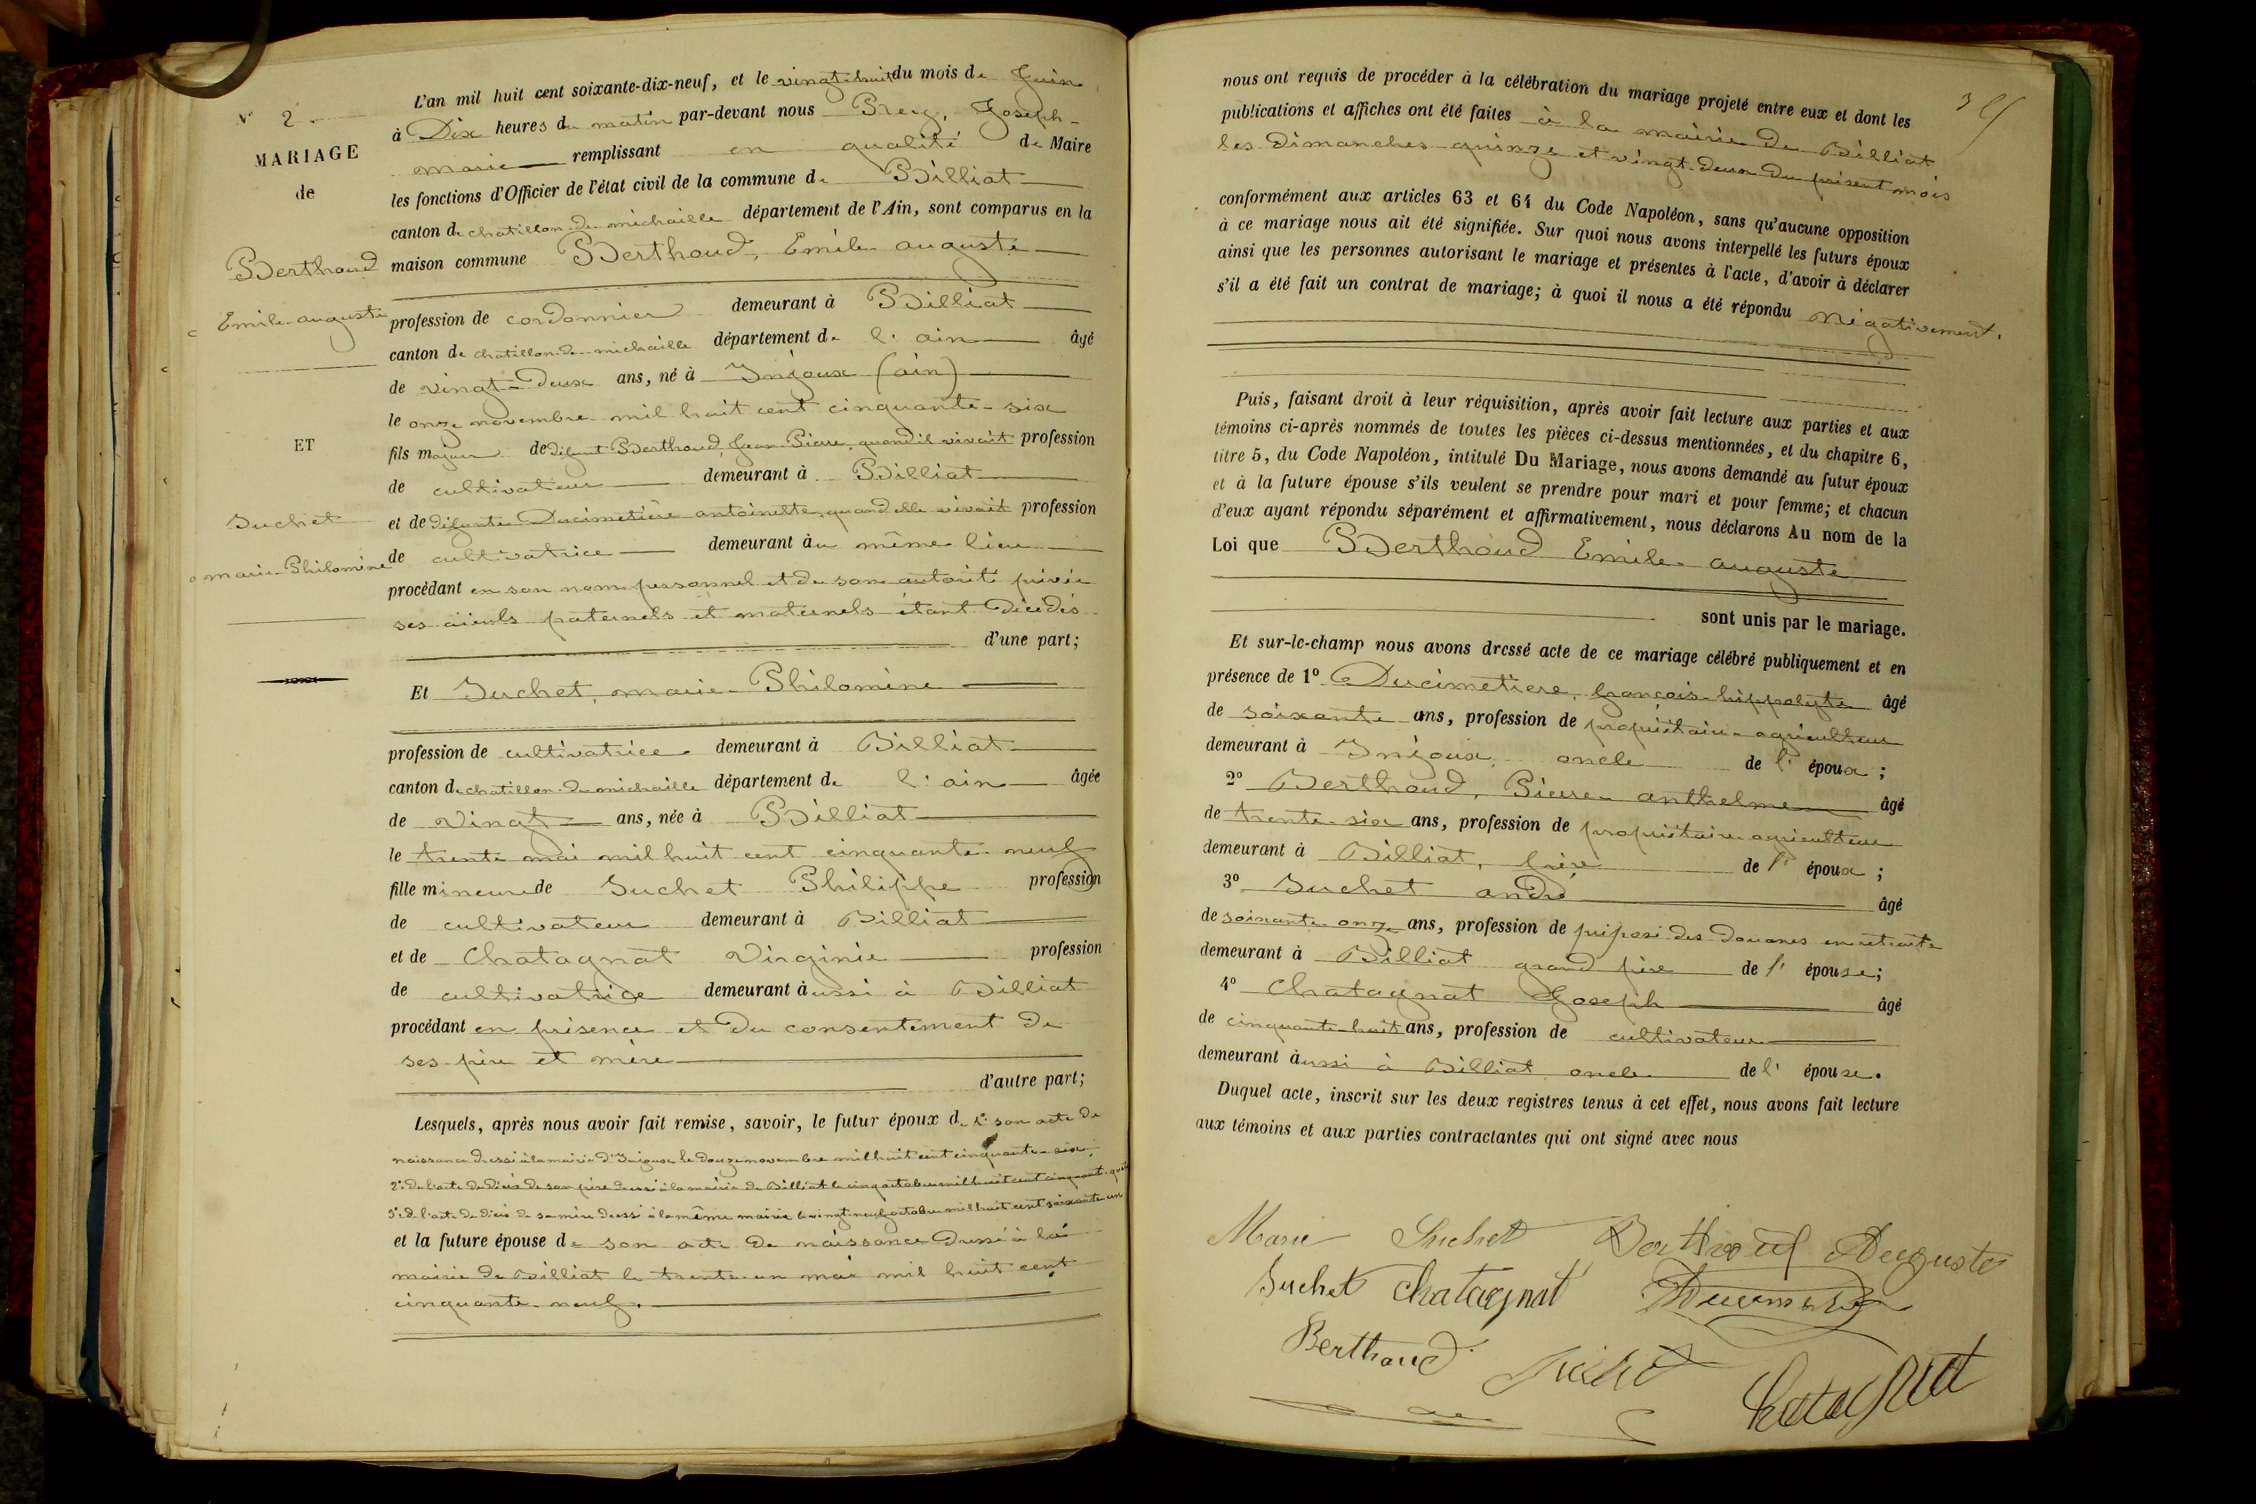 N° 2
MARIAGE
de
Berthoud
Emile-auguste
ET
Suchet
marie-Philomine
L'an mil huit cent soixante-dix-neuf, et le vingt-huit du mois de Juin
à Dix heures du matin par-devant nous Joseph-
marie remplissant en qualité de Maire
les fonctions d'Officier de l'état civil de la commune de Billiat
canton de chatillon-de-michaille département de l'Ain, sont comparus en la
maison commune Berthoud, Emile auguste
profession de cordonnier demeurant à Billiat
canton de chatillon-de-michaille département de l'ain âgé
de vingt-deux ans, né à Injoux (ain)
le onze novembre mil huit cent cinquante-six
fils majeur de défunt Berthoud, Jean Pierre, quand il vivait profession
de cultivateur demeurant à Billiat
et de défunte Ducimetière antoinette, quand elle vivait profession
de cultivatrice demeurant au même lieu
procédant en son nom personnel et de son autorité privée
ses aïeuls paternels et maternels étant décédés
d'une part;
Et Suchet, marie-Philomine
profession de cultivatrice demeurant à Billiat
canton de chatillon-de-michaille département de l'ain âgée
de vingt ans, née à Billiat
le trente mai mil huit cent cinquante-neuf
fille mineure de Suchet Philippe profession
de cultivateur demeurant à Billiat
et de Chatagnat Virginie profession
de cultivatrice demeurant aussi à Billiat
procédant en présence et du consentement de
ses père et mère
d'autre part;
Lesquels, après nous avoir fait remise, savoir, le futur époux de 1° son acte de
naissance dressé à la mairie d'Injoux le douze novembre mil huit cent cinquante-six,
2° de l'acte de décès de son père dressé à la mairie de Billiat le cinq octobre mil huit cent cinquante-
3° de l'acte de décès de sa mère dressé à la même mairie le vingt-neuf octobre mil huit cent soixante-un
et la future épouse de son acte de naissance dressé à la
mairie de Billiat le trente-un mai mil huit cent
cinquante-neuf.
nous ont requis de procéder à la célébration du mariage projeté entre eux et dont les
publications et affiches ont été faites à la mairie de Billiat
les dimanches quinze et vingt-deux du présent mois
conformément aux articles 63 et 64 du Code Napoléon, sans qu'aucune opposition
à ce mariage nous ait été signifiée. Sur quoi nous avons interpellé les futurs époux
ainsi que les personnes autorisant le mariage et présentes à l'acte, d'avoir à déclarer
s'il a été fait un contrat de mariage; à quoi il nous a été répondu négativement.
Puis, faisant droit à leur réquisition, après avoir fait lecture aux parties et aux
témoins ci-après nommés de toutes les pièces ci-dessus mentionnées, et du chapitre 6,
titre 5, du Code Napoléon, intitulé Du Mariage, nous avons demandé au futur époux
et à la future épouse s'ils veulent se prendre pour mari et pour femme; et chacun
d'eux ayant répondu séparément et affirmativement, nous déclarons Au nom de la
Loi que Berthoud Emile auguste
sont unis par le mariage.
Et sur-le-champ nous avons dressé acte de ce mariage célébré publiquement et en
présence de 1° Ducimetiere, françois-hippolyte âgé
de soixante ans, profession de propriétaire-agriculteur
demeurant à Injoux, oncle de l'époux;
2° Berthoud, Pierre anthelme âgé
de trente-six ans, profession de propriétaire-agriculteur
demeurant à Billiat, frère de l'époux;
3° Suchet andré âgé
de soixante-onze ans, profession de préposé des douanes en retraite
demeurant à Billiat grand père de l'épouse;
4° Chatagnat Joseph âgé
de cinquante-huit ans, profession de cultivateur
demeurant aussi à Billiat oncle de l'épouse.
Duquel acte, inscrit sur les deux registres tenus à cet effet, nous avons fait lecture
aux témoins et aux parties contractantes qui ont signé avec nous
Marie Suchet Berthoud Auguste
Suchet Chatagnat
Berthoud Suchet
Chatagnat